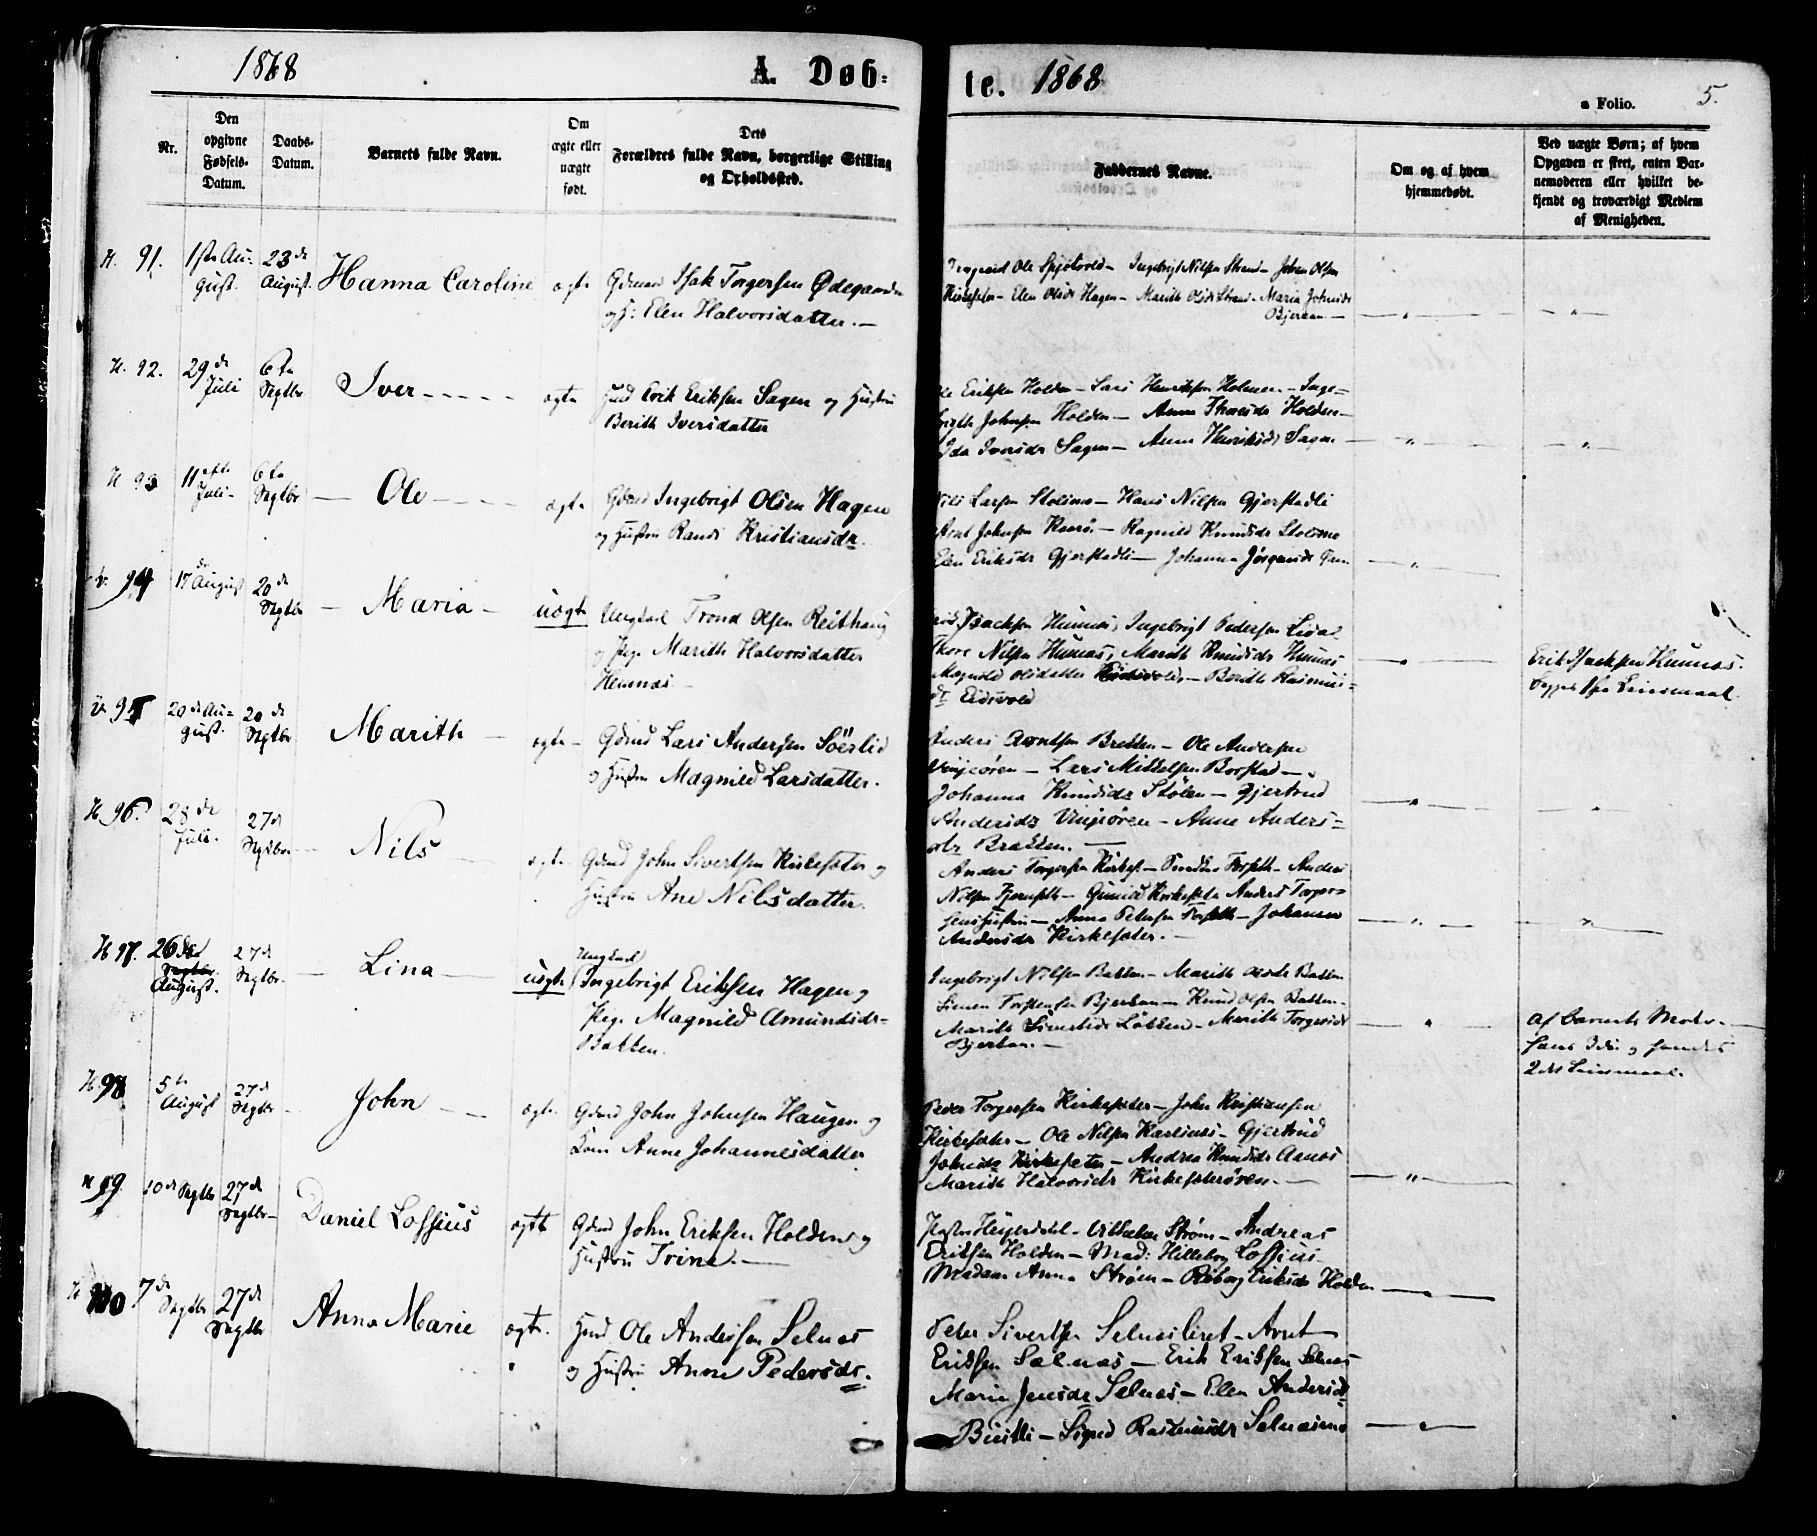 1868
A. Døb-
te. 1868
a Folio. 5.
Nr.
Den opgivne Fødsels-Datum.
Daabs-Datum.
Barnets fulde Navn.
Om ægte eller uægte født.
Dets Forældres fulde Navn, borgerlige Stilling og Opholdssted.
Faddernes Navne.
Om og af hvem hjemmedøbt.
Ved uægte Børn; af hvem Opgaven er skeet, enten Barnemoderen eller hvilket bekjendt og troværdigt Medlem af Menigheden.
H. 91. 1ste August. 23de August. Hanna Caroline ægte Gdmand Isak Torgersen Ødegaarden
og H: Elen Halvorsdatter.
Ole Spjøtvold - Ingebrigt Nilsen Strand - Johan Olsen
Kirkesæter - Elen Olsdr Hagen - Marith Olsdr Strand - Maria Johnsdr
Bjerkan
H. 92. 29de Juli 6te Septbr Iver ægte Hmd Erik Eriksen Sagen og Hustru
Berith Iversdatter
Ole Eriksen Holden - Lars Henriksen Holmen - Inge-
brigt Johnsen Holden - Anne Thoresdr Holden -
Ida Iversdr Sagen - Anne Henriksdr Sagen
H 93 11efte Juli 6te Septbr Ole ægte Gdmd Ingebrigt Olsen Hagen
og Hustru Randi Kristiansdr.
Nils Larsen Stolmo - Hans Nilsen Gjerstadli
Arnt Johnsen - Ragnild Knudsdr Stolmo
Elen Eriksdr Gjerstadli - Johanna Jørgensdr
V. 94 17de August 20de Septbr Maria uægte Ungkarl Trond Olsen Reithaug
og Pige Marith Halvorsdatter
Hemnæs
Erik Isachsen Humnæs, Ingebrigt Pedersen
Thore Nilsen Humnæs, Marith Knudsdr Humnæs
Magnild Olsdatter Eidsvold - Berith Rasmus-
dr Eidsvold
Erik Isachsen Humnæs.
begges 1ste Leiermaal.
V. 95 20de August. 20de Septbr Marith ægte Gdmd Lars Andersen Söeslid
og Hustru Magnild Larsdatter.
Anders Arntsen Brekken - Ole Andersen
Vinjeören - Lars Mikkelsen Borstad -
Johanna Knudsdr Stölen - Gjertrud
Andersdr Vinjeören - Anne Anders-
dtr Brekken.
H. 96. 28de Juli. 27de Septbr Nils ægte Gdmd John Sivertsen Kirkesæter og
Hustru Ane Nilsdatter.
Anders Torgersen Kirkes. - Forseth - Anders
Nilsen Fjerseth - Gunild Kirkesæter Anders Torger-
sens Hustru - Anna Petersen Forseth - Johanna
Andersdr Kirkesæter.
H 97. 26de Septbr. August. 27de Septbr. Lina uægte Ungkarl
Ingebrigt Eriksen Hagen og
Pige Magnild Amundsdr
Bakken.
Ingebrigt Nilsen Bakken - Marith Olsdr Bakken
Simen Torstensen Bjerkan - Knud Olsen Bakken.
Marith Sivertsdr Løkken - Marith Torgersdr
Bjerkan.
Af Barnets Moder
hans 3die og hendes
2det Leiermaal.
H. 98 5te August 27de Septbr John ægte Gdmd John Johnsen Haugen og
Kone Anne Johannesdatter
Peder Torgersen Kirkesæter - John Kristiansen
Kirkesæter - Ole Nilsen Karlsnæs - Gjertrud
Johnsdr Kirkesæter - Andrea Knudsdr Aanæs
Marith Halvorsdr Kirkesæterøren.
H 99. 10de Septbr 27de Septbr Daniel Lossius ægte Gdmd John Eriksen Holden og
Hustru Trine.
Hejerdahl - Vilhelm Strøm - Andreas
Eriksen Holden - Mad: Hilleborg Lossius
Madam Anna Strøm - Røborg Eriksdr Holden
H 100 7de Septbr 27de Septbr Anna Marie ægte. Hmd Ole Andersen Selnæs
og Hustru Anne Pedersdr.
Peter Sivertsen Selnæslivet - Arnt
Eriksen Selnæs - Erik Eriksen Selnæs
Marie Jensdr Selnæs - Elen Andersdr
Buistli - Sigred Rasmusdr Selnæsmo